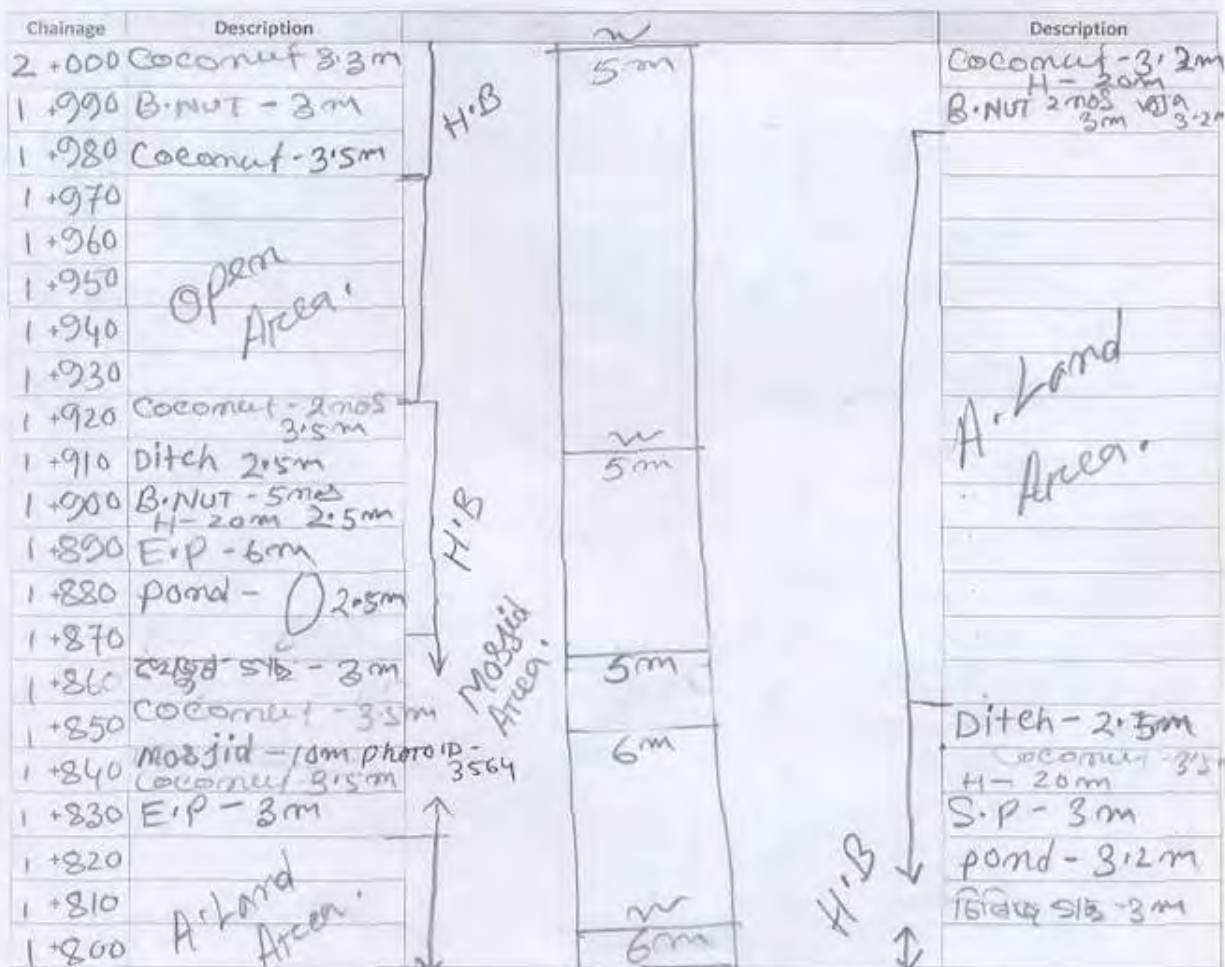 Chainage Description Description
w
2+000 Coconut 3.3m 5m Coconut - 3.2m
H - 20m
1+990 B.NUT - 3m H.B B.NUT 2 nos
3m 3.2m
1+980 Coconut - 3.5m
1+970
1+960
1+950 Open
Area.
1+940
1+930 A. Land
Area.
1+920 Coconut - 2 nos
3.5m
w
1+910 Ditch 2.5m 5m
1+900 B.NUT - 5 nos
H - 20m 2.5m H.B
1+890 E.P - 6m
1+880 pond - 2.5m
1+870 Mosjid
Area.
1+860 গাছ - 3m 5m
1+850 Coconut - 3.5m Ditch - 2.5m
1+840 Mosjid - 10m photo ID -
3564 6m Coconut - 3.5m
Coconut 3.5m H - 20m
1+830 E.P - 3m S.P - 3m
1+820 H.B pond - 3.2m
1+810 A. Land
Area. গাছ - 3m
w
1+800 6m